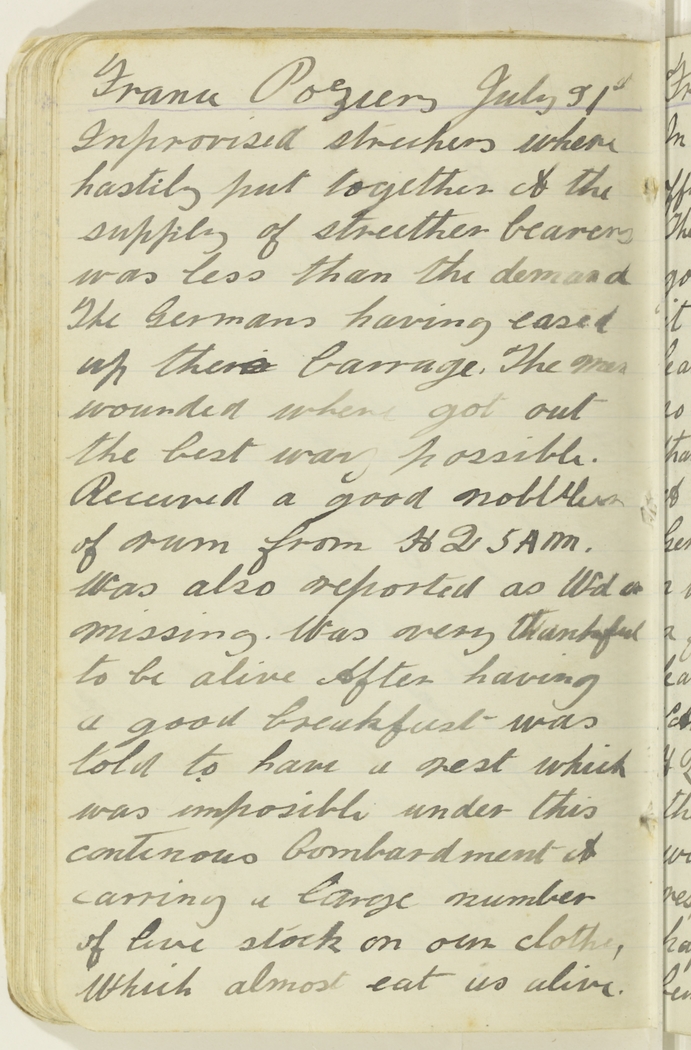 France Pozieres July 31st
Inprovised strechers where
hastily put together & the
supply of stretther bearers
was less than the demand
The Germans having eased
up their barrage. The men
wounded where got out
the best way possible.
Received a good
of rum from H2 5AM.
Was also reported as Wd or
missing. Was very thankful
to be alive After having
a good breakfast was
told to have a rest which
was imposible under this
contenous bombardment &
carring a large number
of live stock on our clothes,
which almost eat us alive.